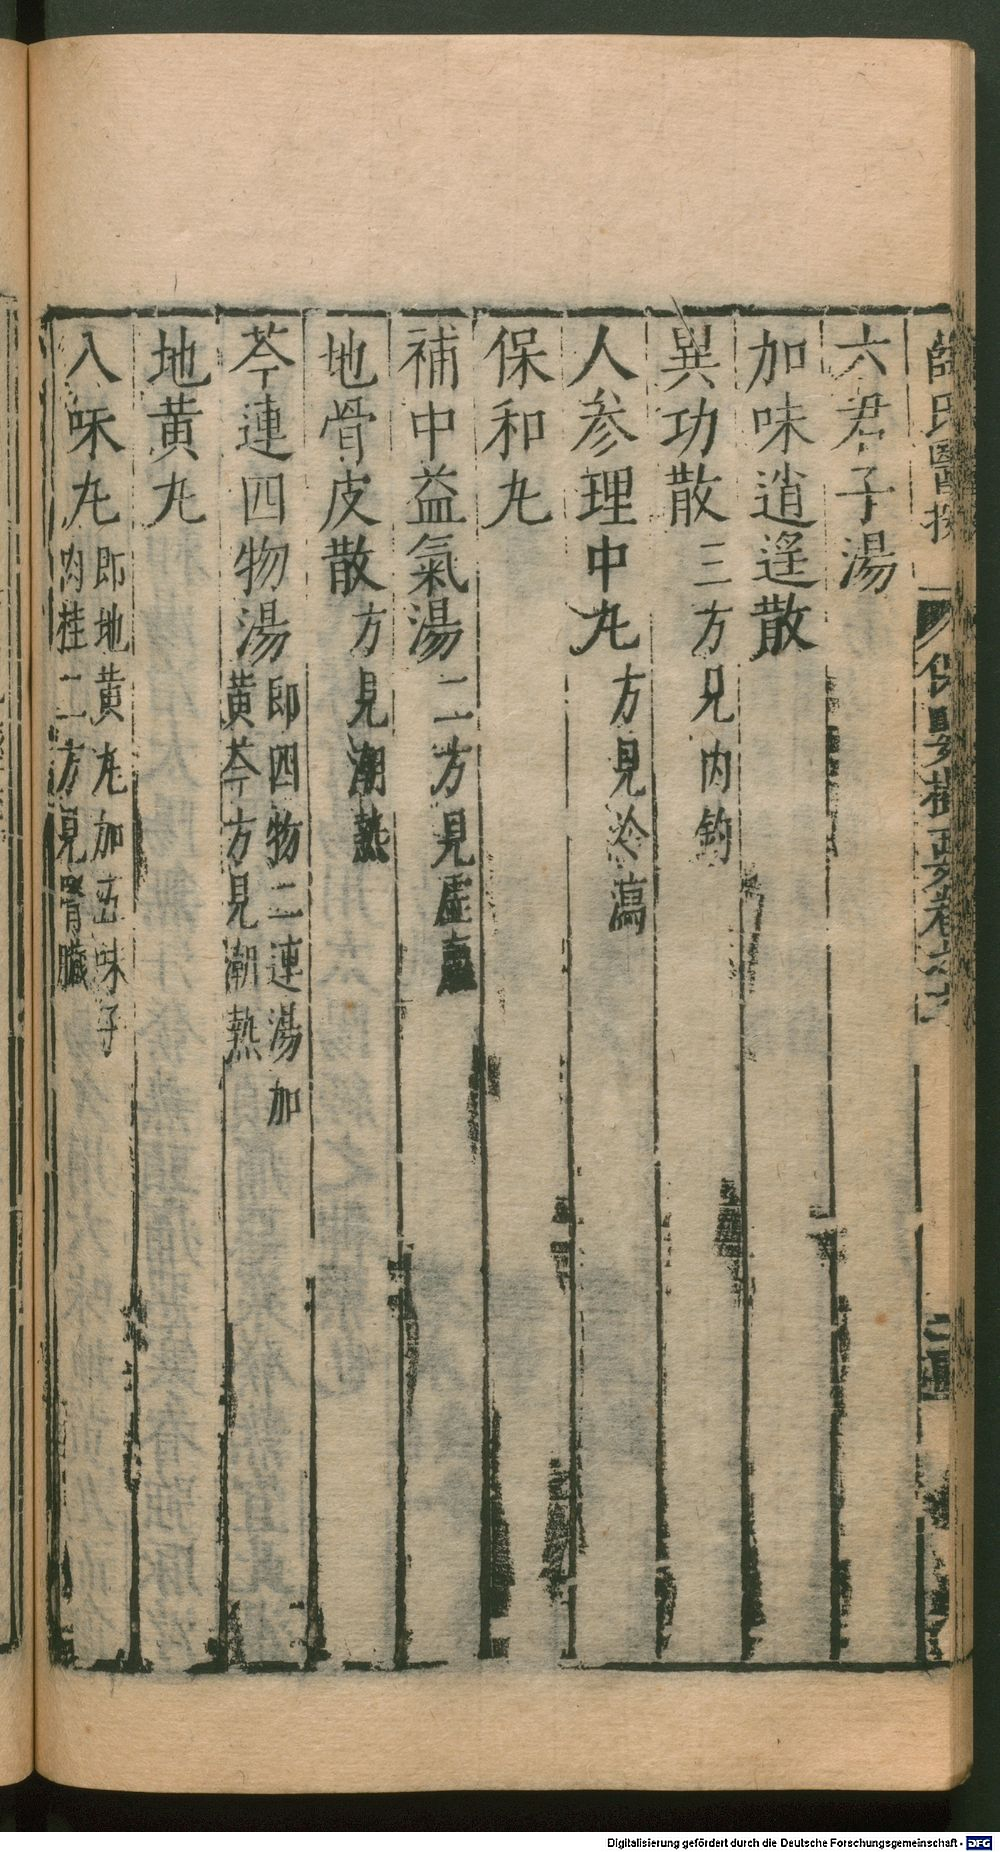 六君子湯
加味逍遙散
異功散 三方見内釣
人參理中丸 方見冷瀉
保和丸
補中益氣湯 二方見虛
地骨皮散 方見潮熱
芩連四物湯 即四物二連湯加
黃芩方見潮熱
地黃丸
八味丸 即地黃丸加五味子
肉桂二方見腎臟
Digitalisierung gefördert durch die Deutsche Forschungsgemeinschaft - DFG